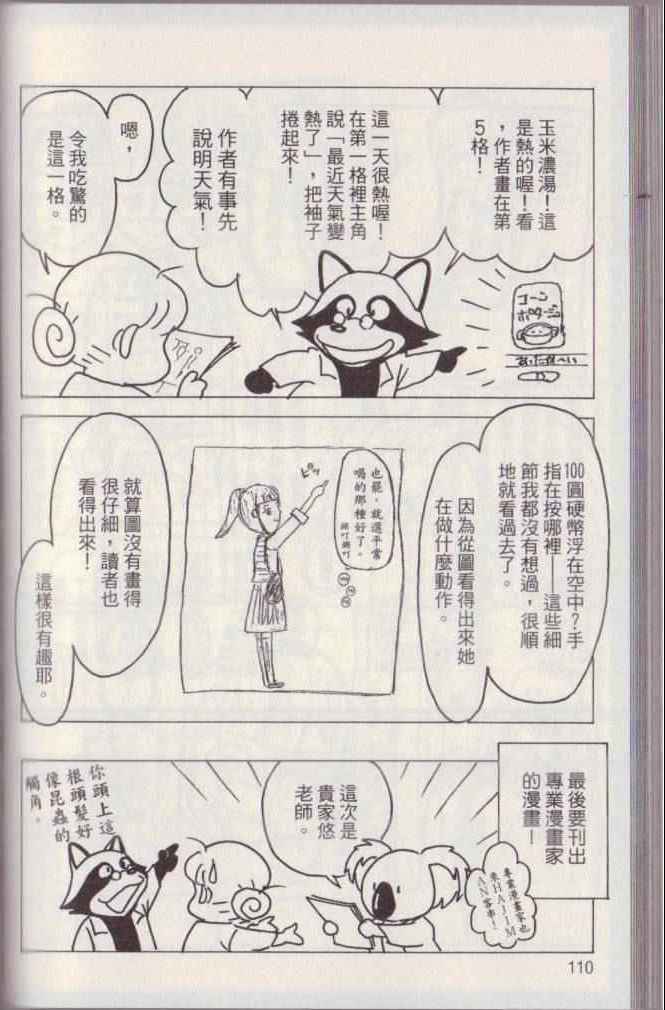 玉米濃湯！這
是熱的喔！看
，作者畫在第
5格！
這一天很熱喔！
在第一格裡主角
說「最近天氣變
熱了」，把袖子
捲起來！
作者有事先
說明天氣！
嗯，
令我吃驚的
是這一格。
コーン
ポタージュ
100圓硬幣浮在空中？手
指在按哪裡——這些細
節我都沒有想過，很順
地就看過去了。
因為從圖看得出來她
在做什麼動作。
也罷，就選平常
喝的那種好了。
ピッ
就算圖沒有畫得
很仔細，讀者也
看得出來！
這樣很有趣耶。
最後要刊出
專業漫畫家
的漫畫—
專業漫畫家也
來HAJIM
AN客串！
這次是
貴家悠
老師。
你頭上這
根頭髮好
像昆蟲的
觸角。
110